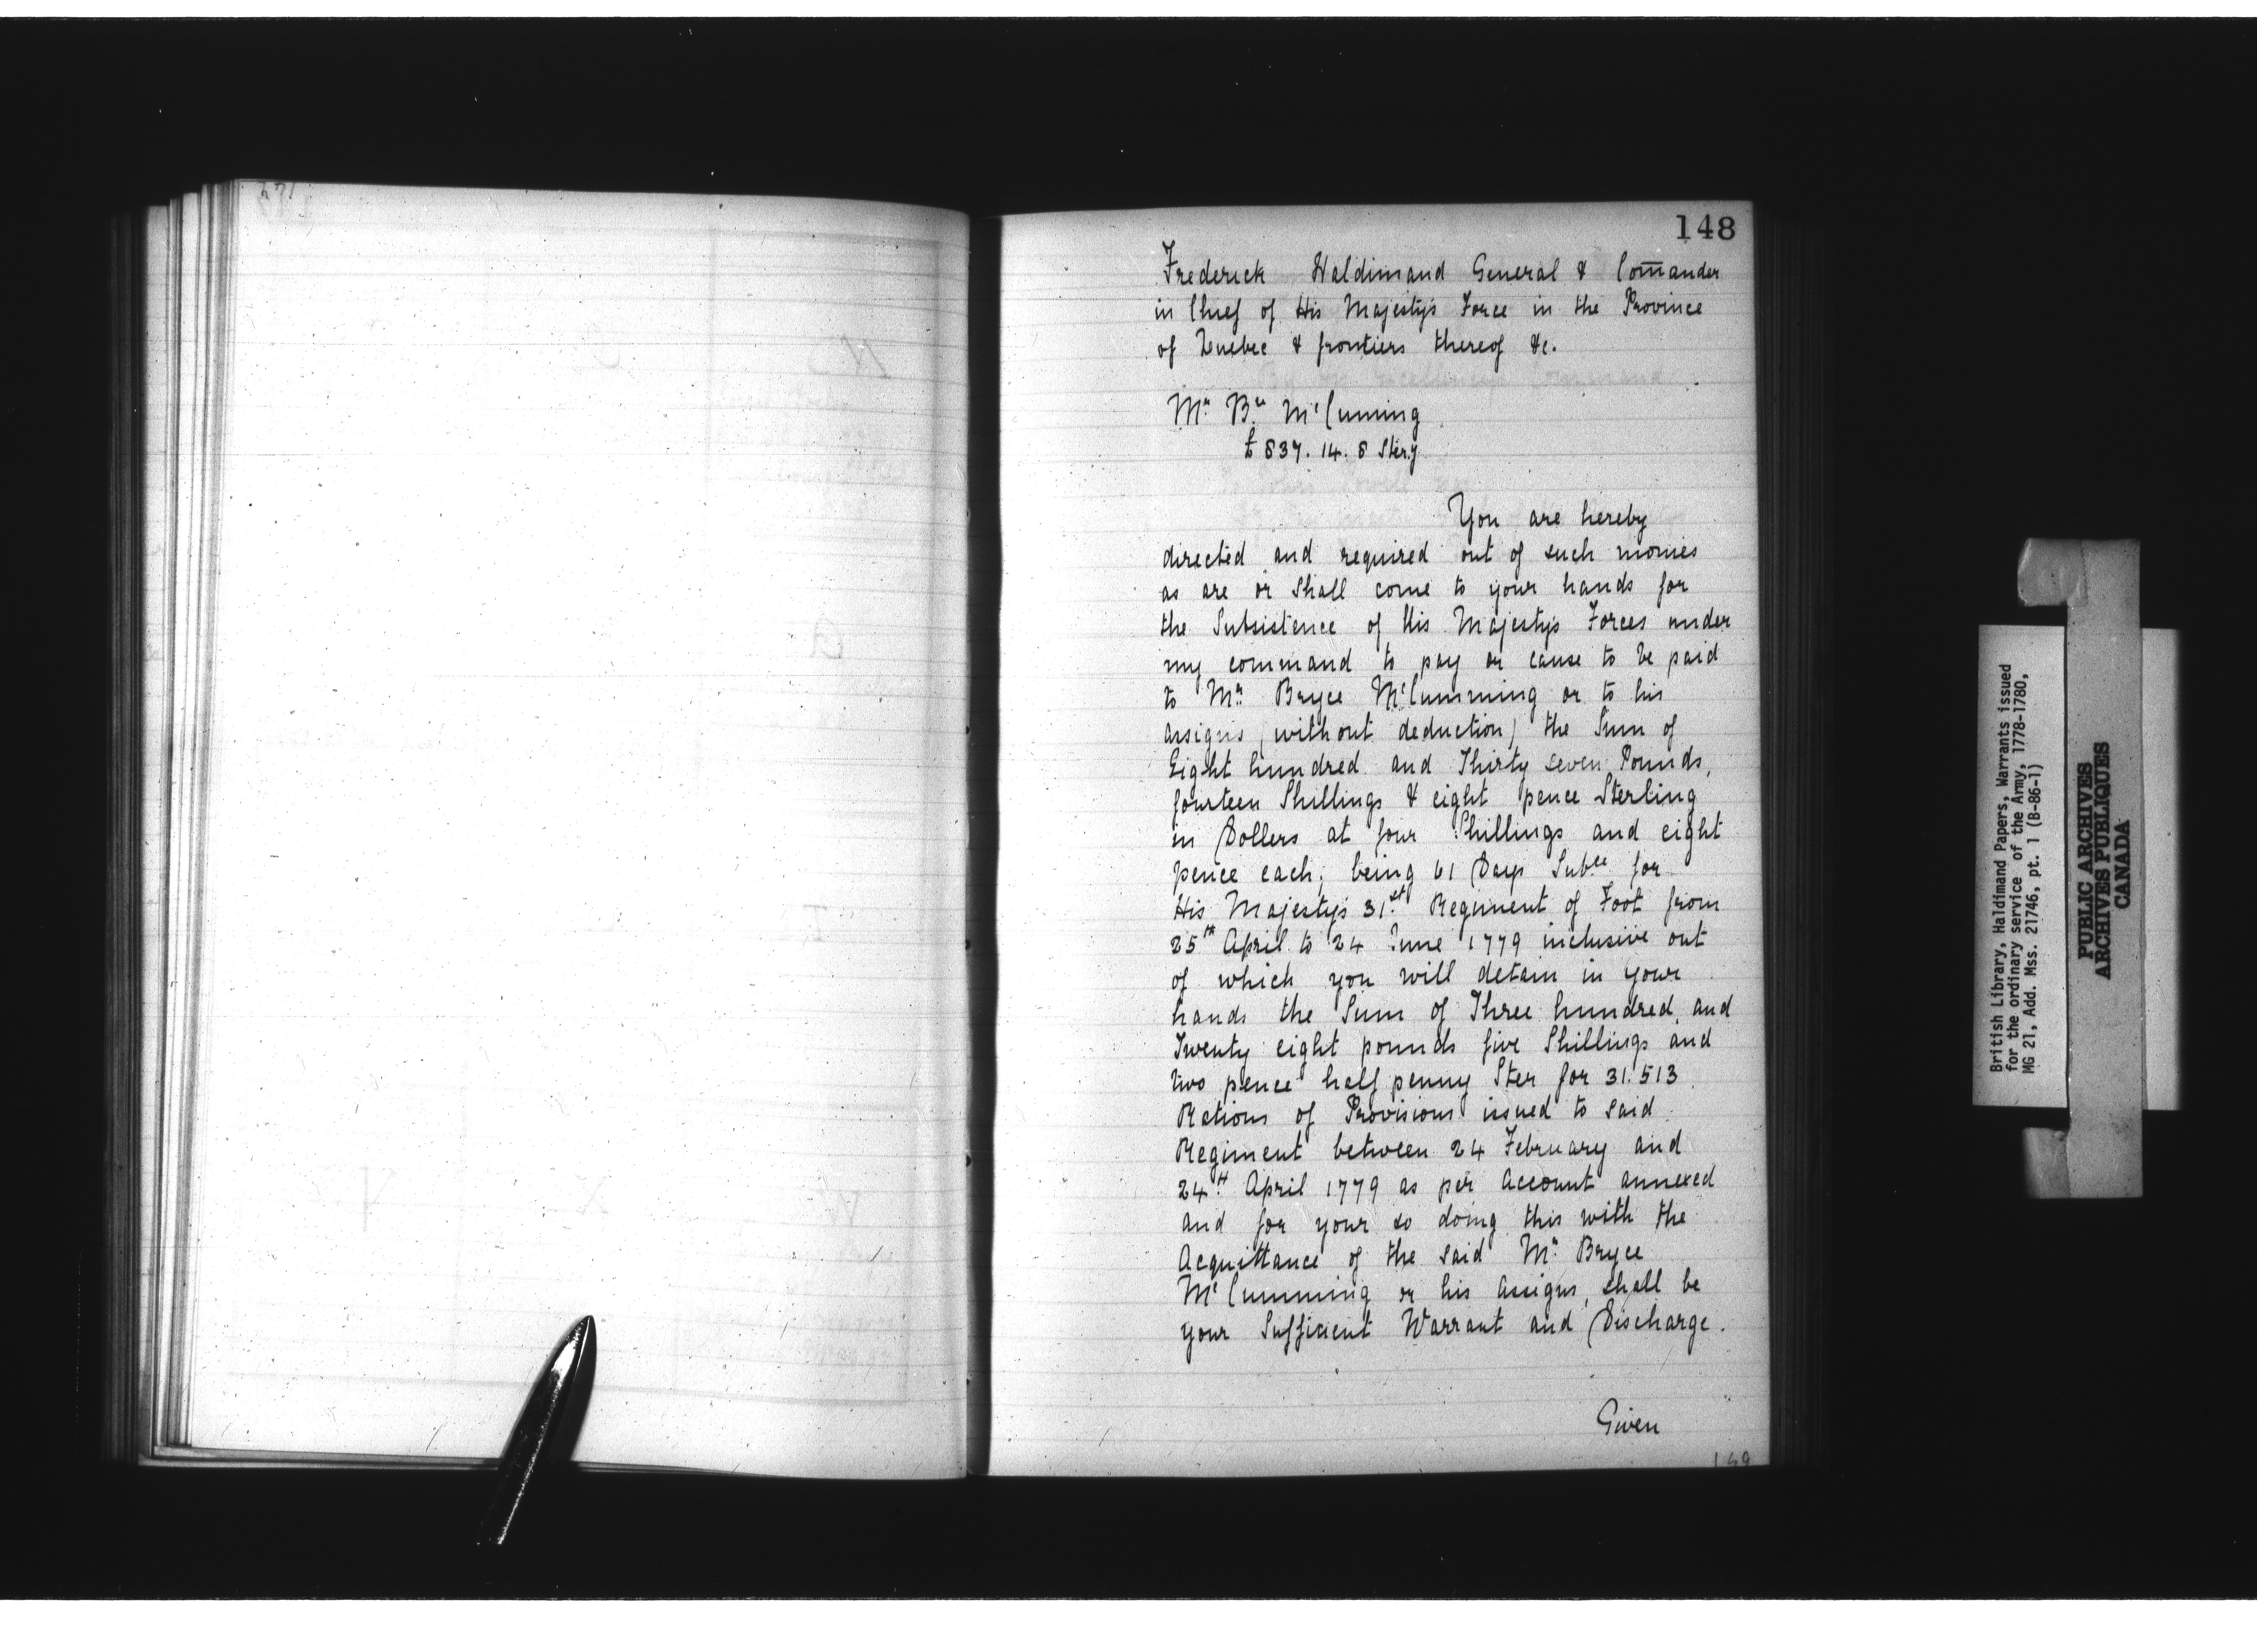 148
Frederick Haldimand General & Com̅ander
in Chief of His Majesty's Force in the Province
of Quebec & frontiers thereof &c.
Mr. Bce McCuming
£ 837. 14. 8 Ster.g
You are hereby
directed and required out of such monies
as are or Shall come to your hands for
the Subsistence of His Majesty's Forces under
my command to pay or cause to be paid
to Mr. Bryce McCumming or to his
assigns (without deduction) the Sum of
Eight hundred and Thirty seven Pounds,
fourteen Shillings & eight pence Sterling
in Dollers at four Shillings and eight
pence each; being 61 Days Subce for
His Majesty's 31st Regiment of Foot from
25th April to 24 June 1779 inclusive out
of which you will detain in your
hands the Sum of Three hundred and
Twenty eight pounds five Shillings and
two pence half penny Ster for 31.513
Rations of Provisions issued to said
Regiment between 24 February and
24th April 1779 as per Account annexed
and for your so doing this with the
Acquittance of the said Mr. Bryce
McCumming or his Assigns, shall be
your Sufficient Warrant and Discharge.
Given
British Library, Haldimand Papers, Warrants issued
for the ordinary service of the Army, 1778-1780,
MG 21, Add. Mss. 21746, pt. 1 (B-86-1)
PUBLIC ARCHIVES
ARCHIVES PUBLIQUES
CANADA